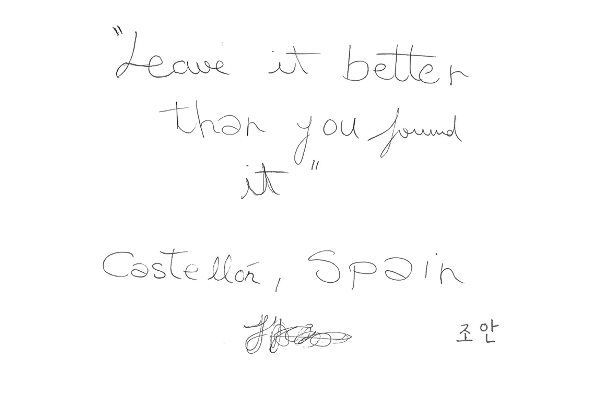 "Leave it better
than you found
it"
Castellón, Spain
조안